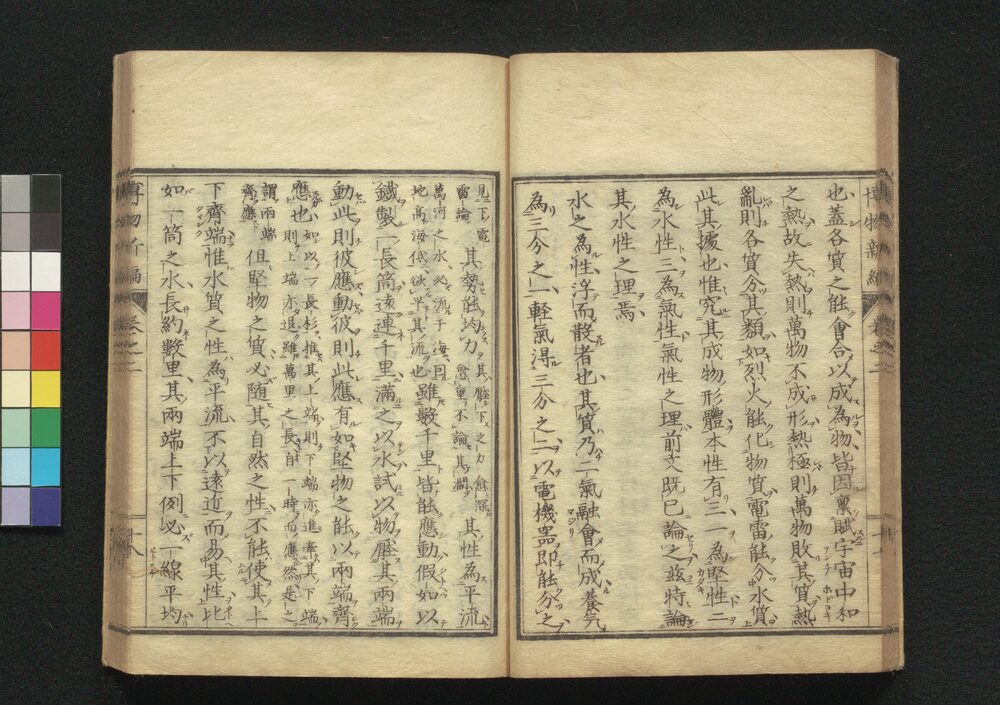 也蓋各質之能會合以成為物皆因稟賦宇宙中和
之熱故失熱則萬物不成形熱極則萬物敗其質熱
亂則各質分其類如烈火能化物質電雷能分水質
此其據也惟究其成物形體本性有三一為堅性二
為水性三為氣性氣性之理前文既已論之茲特論
其水性之理焉
水之為性浮而散者也其質乃二氣融會而成養氣
為三分之一輕氣得三分之二以電機器即能分之
見下電
雷論
其勢能均力
其性為平流
萬河之水必流于海因
地高海低欲平其流也
雖數千里皆能應動假如以
鐵製一長筒遠連千里滿之以水試以物壓其兩端
動此則彼應動彼則此應有如堅物之能以兩端齊
應也
如以一長杉推其上端則下端亦進牽其下端
則上端亦退雖萬里之長自一時而應然是之
謂兩端
齊應
但堅物之質必隨其自然之性不能使其上
下齊端惟水質之性為平流不以遠近而易其性比
如一筒之水長約數里其兩端上下例必一線平均
博物新編
卷之二